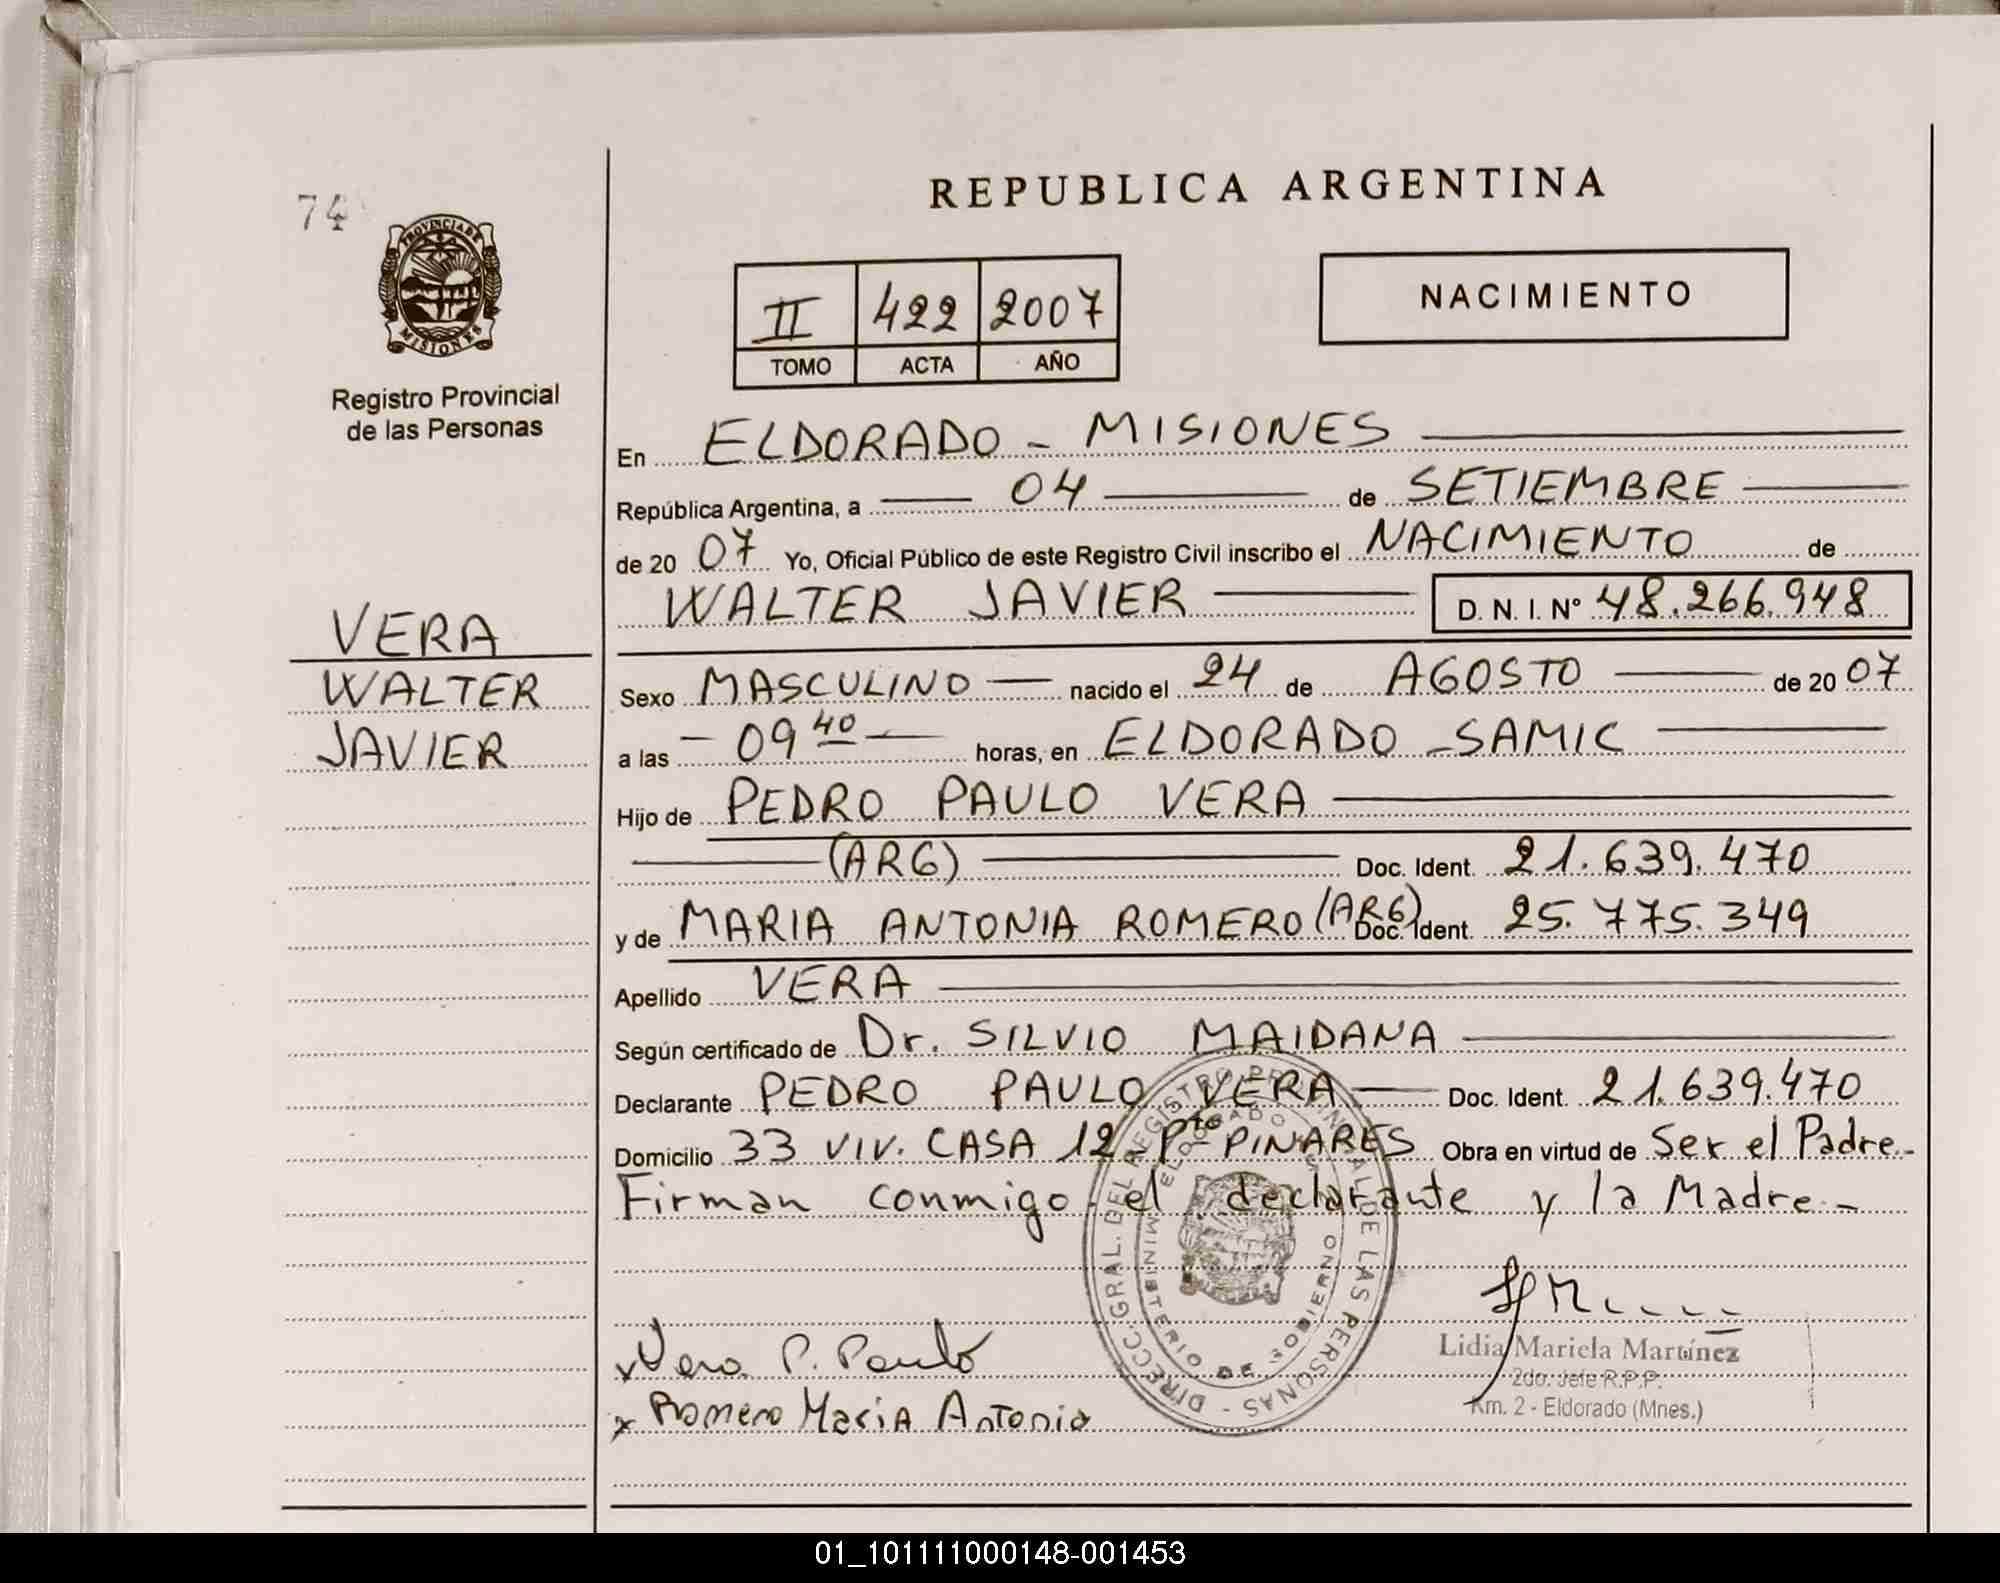 74
PROVINCIA DE
MISIONES
Registro Provincial
de las Personas
VERA
WALTER
JAVIER
REPUBLICA ARGENTINA
II 422 2007
TOMO ACTA AÑO
NACIMIENTO
En ELDORADO - MISIONES
República Argentina, a 04 de SETIEMBRE
de 20 07 Yo, Oficial Público de este Registro Civil inscribo el NACIMIENTO de
WALTER JAVIER D. N. I. Nº 48.266.948
Sexo MASCULINO nacido el 24 de AGOSTO de 20 07
a las - 09 40 horas, en ELDORADO - SAMIC
Hijo de PEDRO PAULO VERA
(ARG) Doc. Ident. 21.639.470
y de MARIA ANTONIA ROMERO (ARG) Doc. Ident. 25.775.349
Apellido VERA
Según certificado de Dr. SILVIO MAIDANA
Declarante PEDRO PAULO VERA Doc. Ident. 21.639.470
Domicilio 33 VIV. CASA 12 - Pto PINARES Obra en virtud de Ser el Padre.-
Firman conmigo el declarante y la Madre.-
DIRECC. GRAL. DEL REGISTRO PROVINCIAL DE LAS PERSONAS -
MINISTERIO DE GOBIERNO
ELDORADO
x Vera. P. Paulo
x Romero Maria Antonia
Lidia Mariela Martínez
2do. Jefe R.P.P.
Km. 2 - Eldorado (Mnes.)
01_101111000148-001453